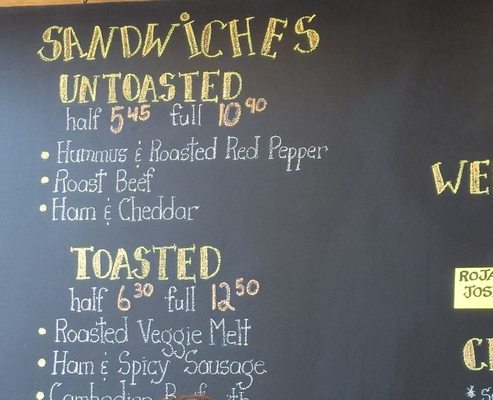 SANDWICHES
UNTOASTED
half 5.45 full 10.90
• Hummus & Roasted Red Pepper
• Roast Beef
• Ham & Cheddar
TOASTED
half 6.30 full 12.50
• Roasted Veggie Melt
• Ham & Spicy Sausage
• Cambodian
WE
ROJA
JOS